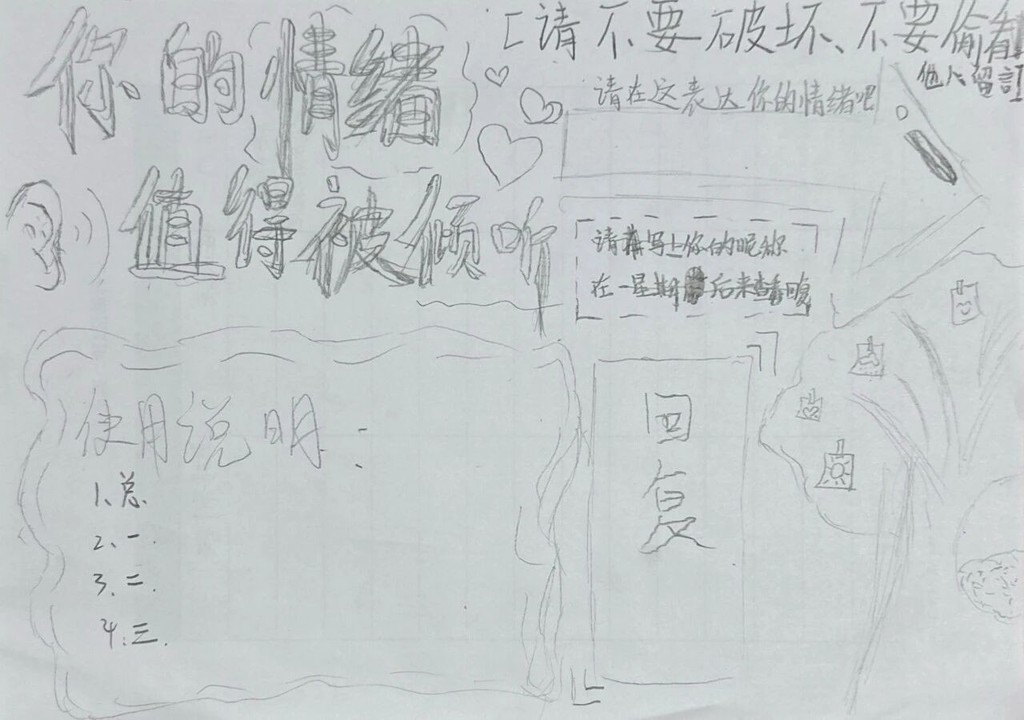 你的情绪
值得被倾听
[请不要破坏、不要偷看
他人留言
请在这表达你的情绪吧
请写上你的昵称
在一星期后来查看
使用说明:
1、总
2、一.
3、二.
4、三.
回
复